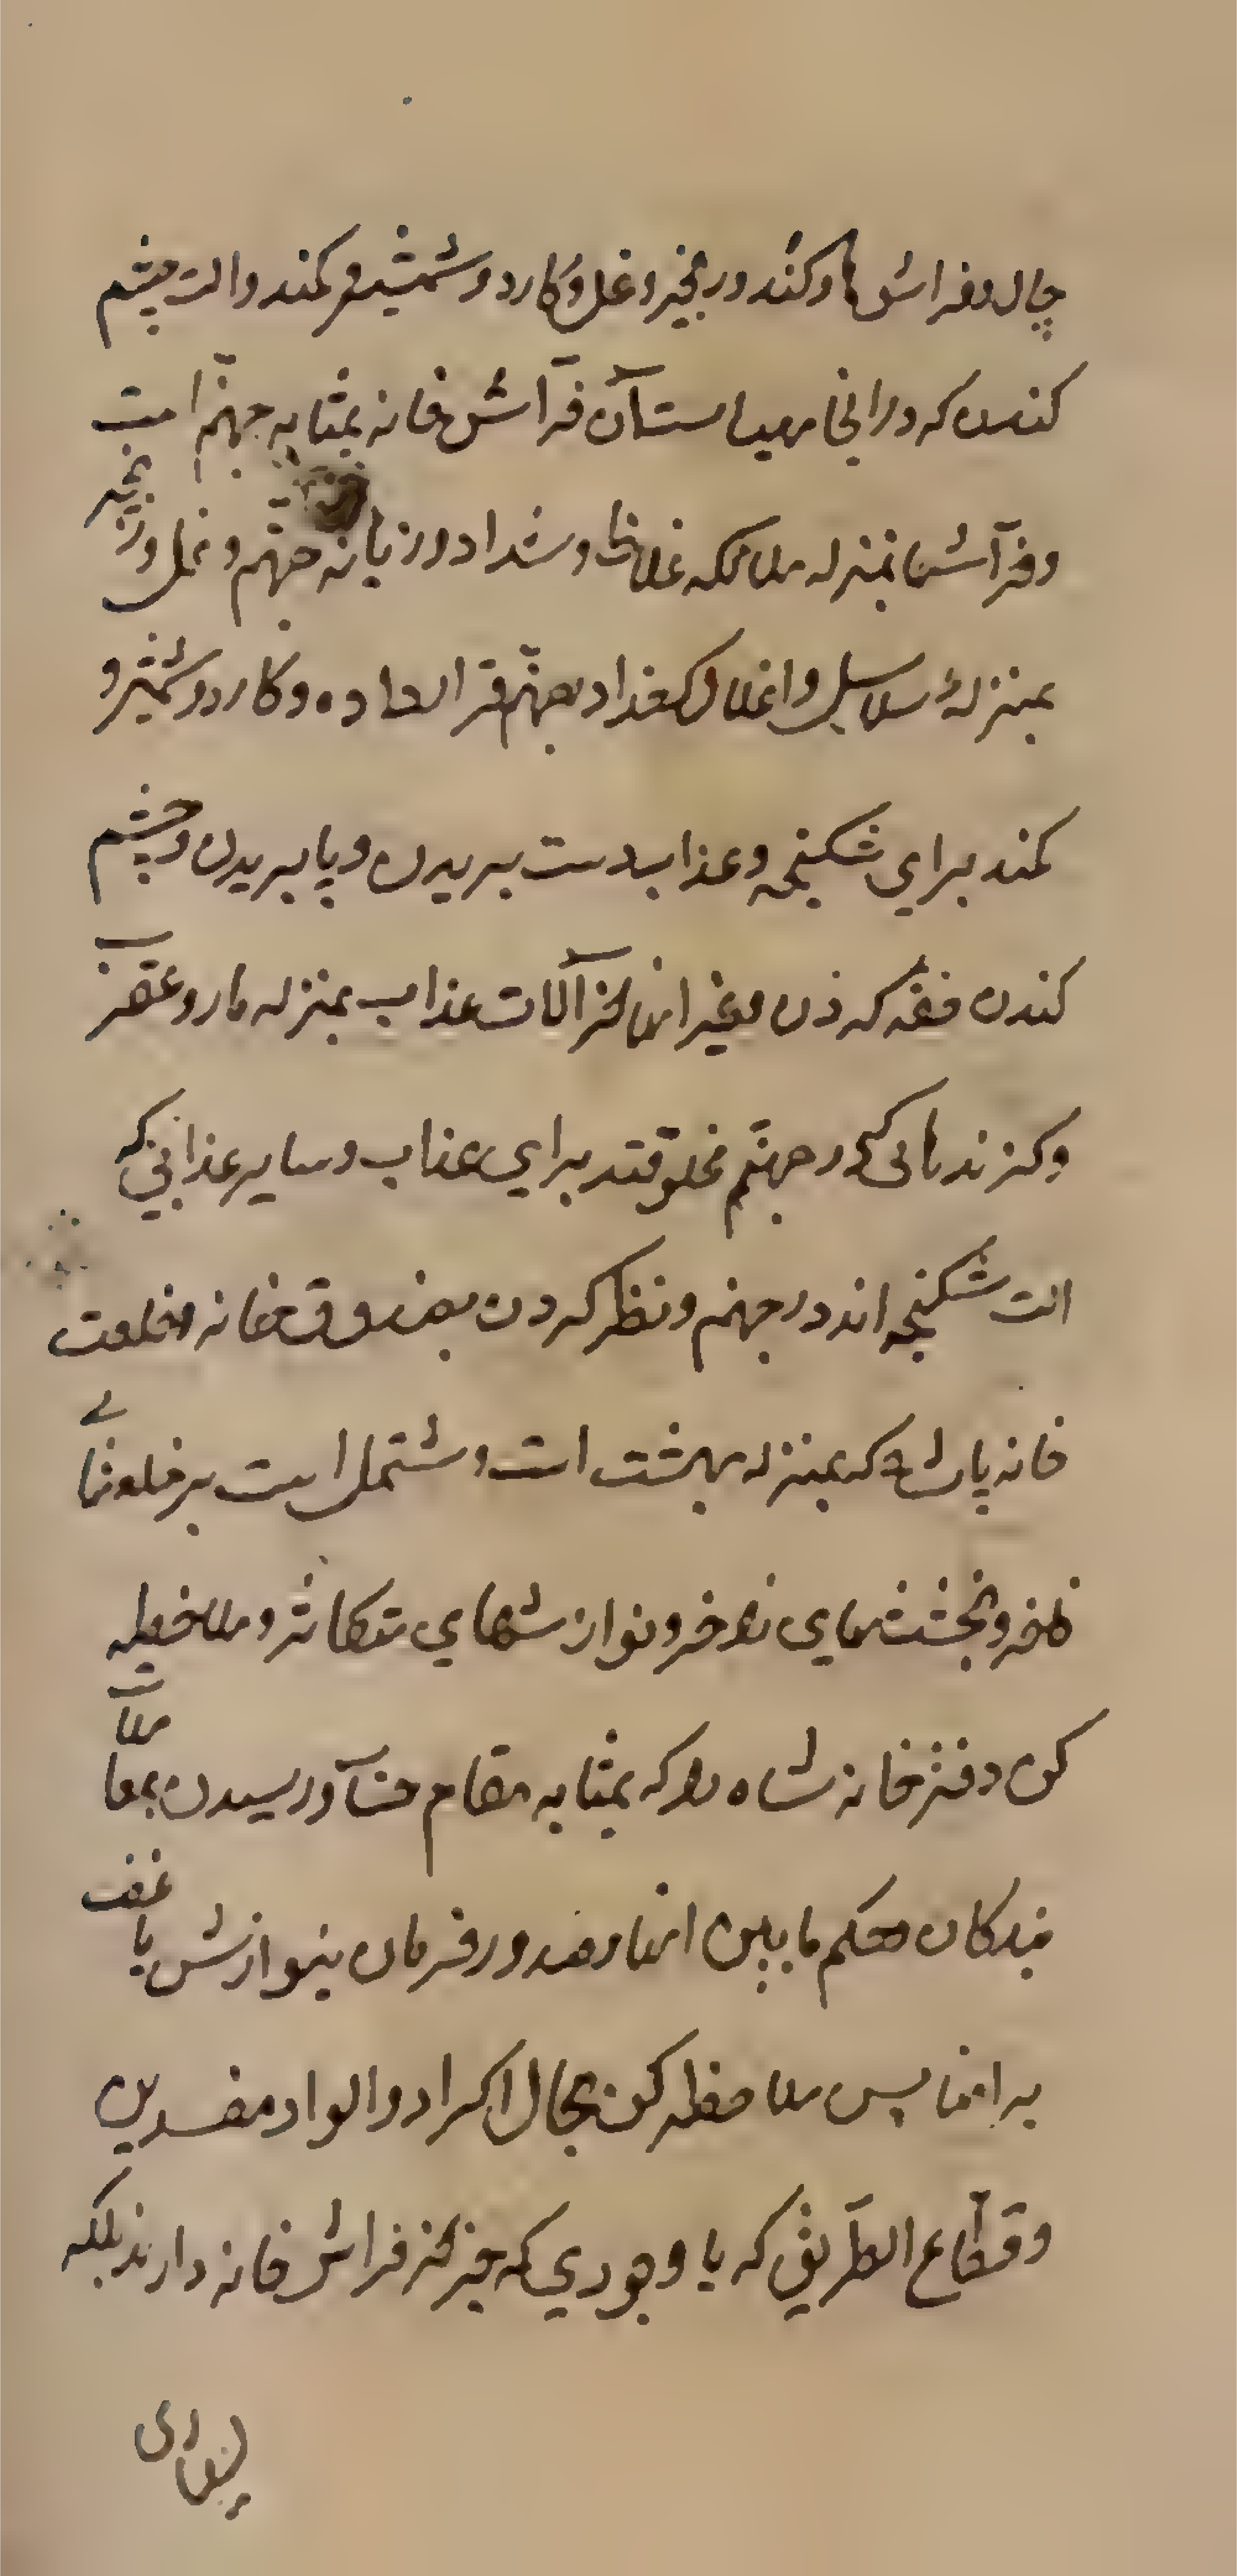 چال و فراش ها و کُند و زنجیر و غل و کارد و شمشیر و کمند و الت چشم
کندن که در انجا مهیاست آن فرّاش خانه بمثابه جهنّم است
و فرّاشها بمنزله ملائکه غلاظ و شداد و زبانه جهنّم و غل و زنجیر
بمنزلهٔ سلاسل و اغلال که خدا در جهنّم قرار داده و کارد و شمشیر و
کمند برای شکنجه و عذاب دست بریدن و پا بریدن و چشم
کندن خفه کردن و غیر اینها از آلات عذاب بمنزله مار و عقرب
و گزندهائی که در جهنّم مخلوقند برای عذاب و سایر عذابی که
الت شکنجه اند در جهنم و نظر کردن بصندوقخانه و خلعت
خانه پادشاه که بمنزله بهشت است و مشتمل است بر خلعتهای
فاخره و بخششهای زاخر و نوازشهای متکاثر و ملاحظه
کن دفترخانه شاه را که بمثابه مقام حساب و رسیدن بمعاملات
بندگان حکم ما بین اینها و صدور فرمان بنوازش یا غضب
بر اینها پس ملاحظه کن بحال اکراد و الواد و مفسدین
و قطّاع الطّریق که با وجودی که خبر از فراش خانه دارند بلکه